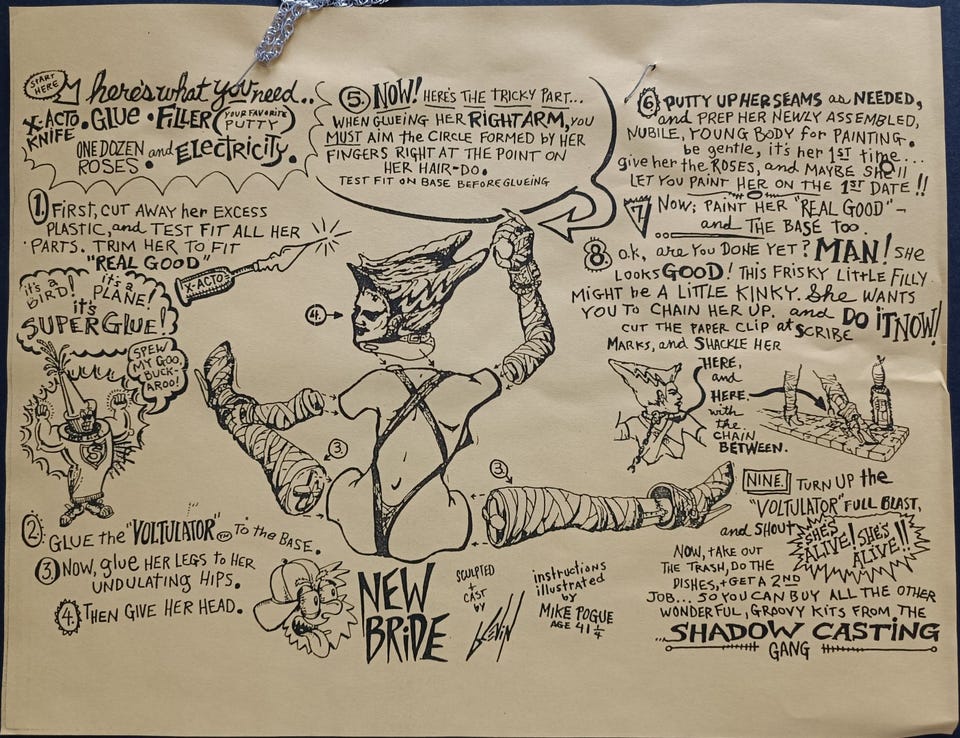 START HERE
here's what you need..
X-ACTO KNIFE • GLUE • FILLER (YOUR FAVORITE PUTTY)
ONE DOZEN ROSES. and ELECTRICITY.
1. FIRST, CUT AWAY her EXCESS
PLASTIC, and TEST FIT ALL HER
PARTS. TRIM HER TO FIT
"REAL GOOD"
X-ACTO
it's a BIRD!
it's a PLANE!
it's
SUPER GLUE!
SPEW
MY GOO,
BUCK-
AROO!
S
2. GLUE the "VOLTULATOR" TM To the BASE.
3. NOW, glue HER LEGS to HER
UNDULATING HIPS.
4. THEN GIVE HER HEAD.
5. NOW! HERE'S THE TRICKY PART...
WHEN GLUEING HER RIGHT ARM, you
MUST AIM the CIRCLE FORMED BY HER
FINGERS RIGHT AT THE POINT ON
HER HAIR-DO.
TEST FIT ON BASE BEFORE GLUEING
4.
3.
3.
NEW
BRiDE
SCULPTED
+
CAST
by
instructions
illustrated
by
MIKE POGUE
AGE 41 1/4
6 PUTTY UP HER SEAMS as NEEDED,
and PREP HER NEWLY ASSEMBLED,
NUBILE, YOUNG BODY for PAINTING.
be gentle, it's her 1ST time...
give her the ROSES, and MAYBE SHE'll
LET YOU PAINT HER ON THE 1ST DATE!!
7 NOW; PAINT HER "REAL GOOD"-
and THE BASE TOO.
8 O.K, are YOU DONE YET? MAN! SHE
LOOKS GOOD! THIS FRISKY LITTLE FILLY
MIGHT be A LITTLE KINKY. She WANTS
YOU TO CHAIN HER UP. and DO iT NOW!
CUT THE PAPER CLIP at SCRIBE
MARKS, and SHACKLE HER
HERE,
and
HERE,
with
the
CHAIN
BETWEEN.
NINE. TURN UP the
"VOLTULATOR" FULL BLAST,
and SHOUT
SHE'S ALIVE! SHE'S ALIVE!!
NOW, tAKE OUT
THE TRASH, DO THE
DISHES, + GET A 2ND
JOB... SO YOU CAN BUY ALL THE OTHER
WONDERFUL, GROOVY KITS FROM THE
...SHADOW CASTING
GANG